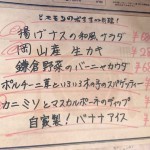 揚げナスの和風サラダ
岡山産 生カキ
鎌倉野菜のバーニャカウダ
ポルチーニ茸といろいろきのこのスパゲッティー
カニミソとマスカルポーネのディップ
自家製！バナナアイス